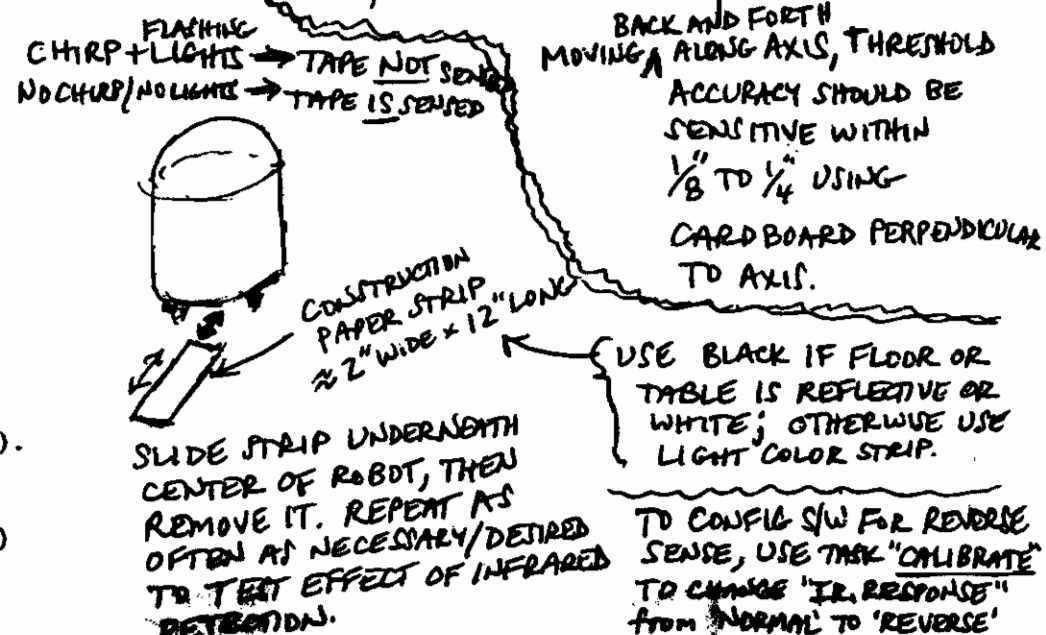 FLASHING
CHIRP + LIGHTS → TAPE NOT SENSED
NO CHIRP/NO LIGHTS → TAPE IS SENSED
BACK AND FORTH
MOVING ∧ ALONG AXIS, THRESHOLD
ACCURACY SHOULD BE
SENSITIVE WITHIN
1/8" TO 1/4" USING
CARDBOARD PERPENDICULAR
TO AXIS.
CONSTRUCTION
PAPER STRIP
≈ 2" WIDE × 12" LONG
USE BLACK IF FLOOR OR
TABLE IS REFLECTIVE OR
WHITE; OTHERWISE USE
LIGHT COLOR STRIP.
).
)
SLIDE STRIP UNDERNEATH
CENTER OF ROBOT, THEN
REMOVE IT. REPEAT AS
OFTEN AS NECESSARY/DESIRED
TO TEST EFFECT OF INFRARED
DETECTION.
TO CONFIG S/W FOR REVERSE
SENSE, USE TASK "CALIBRATE"
TO CHANGE "I.R. RESPONSE"
from 'NORMAL' TO 'REVERSE'